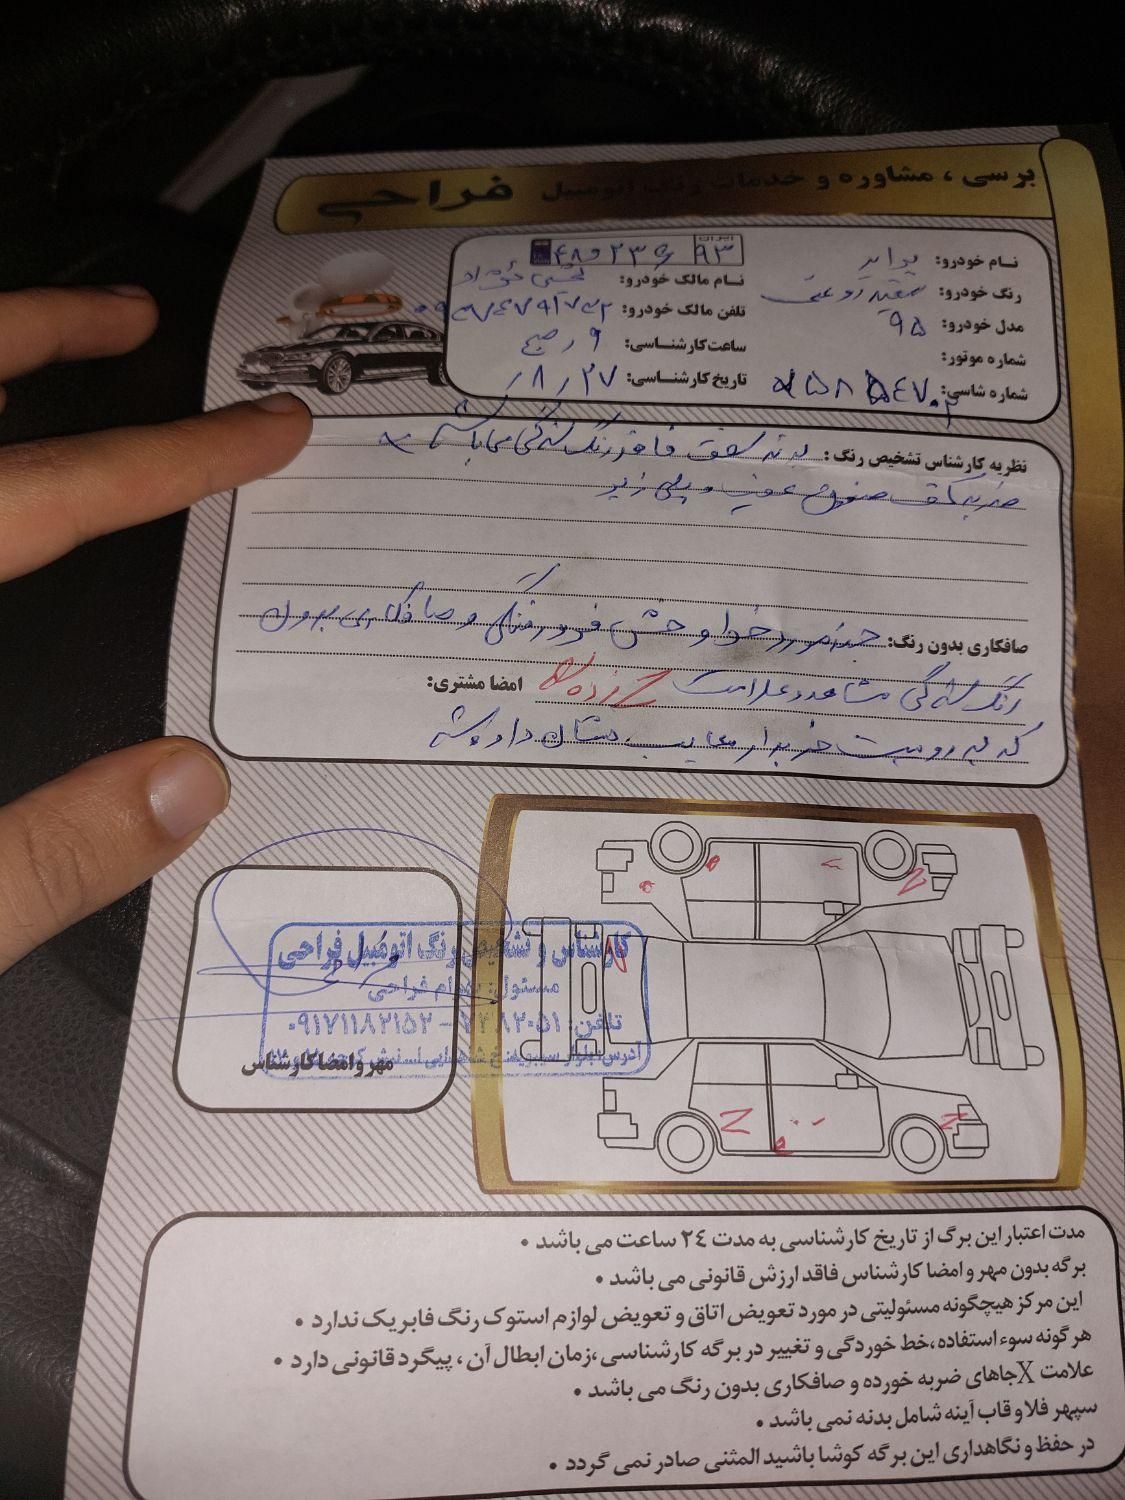 برسی ، مشاوره و خدمات رنگ اتومبیل فراحی
نام خودرو: پراید
رنگ خودرو: سفید روغنی
مدل خودرو: ۹۵
شماره موتور:
شماره شاسی:
ایران
۹۳ ۴۸و۲۳۶
نام مالک خودرو:
تلفن مالک خودرو:
ساعت کارشناسی: ۹ صبح
تاریخ کارشناسی: ۸/۲۷
نظریه کارشناس تشخیص رنگ: بدنه سقف فاقد رنگ شدگی می باشد
ضربه کف صندوق عقب و پلی زیر
صافکاری بدون رنگ: جز موارد خط و خش فرورفتگی و صافکاری بدون
رنگ شدگی مشاهده علامت زده شد
امضا مشتری:
که به رویت خریدار معایب نشان داده شد
کارشناس و تشخیص رنگ اتومبیل فراحی
مسئول: بهرام فراحی
تلفن: ۰۹۱۷۱۱۸۲۱۵۲ -
آدرس: بلوار سیبویه
مهر و امضا کارشناس
مدت اعتبار این برگ از تاریخ کارشناسی به مدت ۲۴ ساعت می باشد •
برگه بدون مهر و امضا کارشناس فاقد ارزش قانونی می باشد •
این مرکز هیچگونه مسئولیتی در مورد تعویض اتاق و تعویض لوازم استوک رنگ فابریک ندارد •
هرگونه سوء استفاده،خط خوردگی و تغییر در برگه کارشناسی ،زمان ابطال آن ، پیگرد قانونی دارد •
علامت X جاهای ضربه خورده و صافکاری بدون رنگ می باشد •
سپهر فلاو قاب آینه شامل بدنه نمی باشد •
در حفظ و نگاهداری این برگه کوشا باشید المثنی صادر نمی گردد •